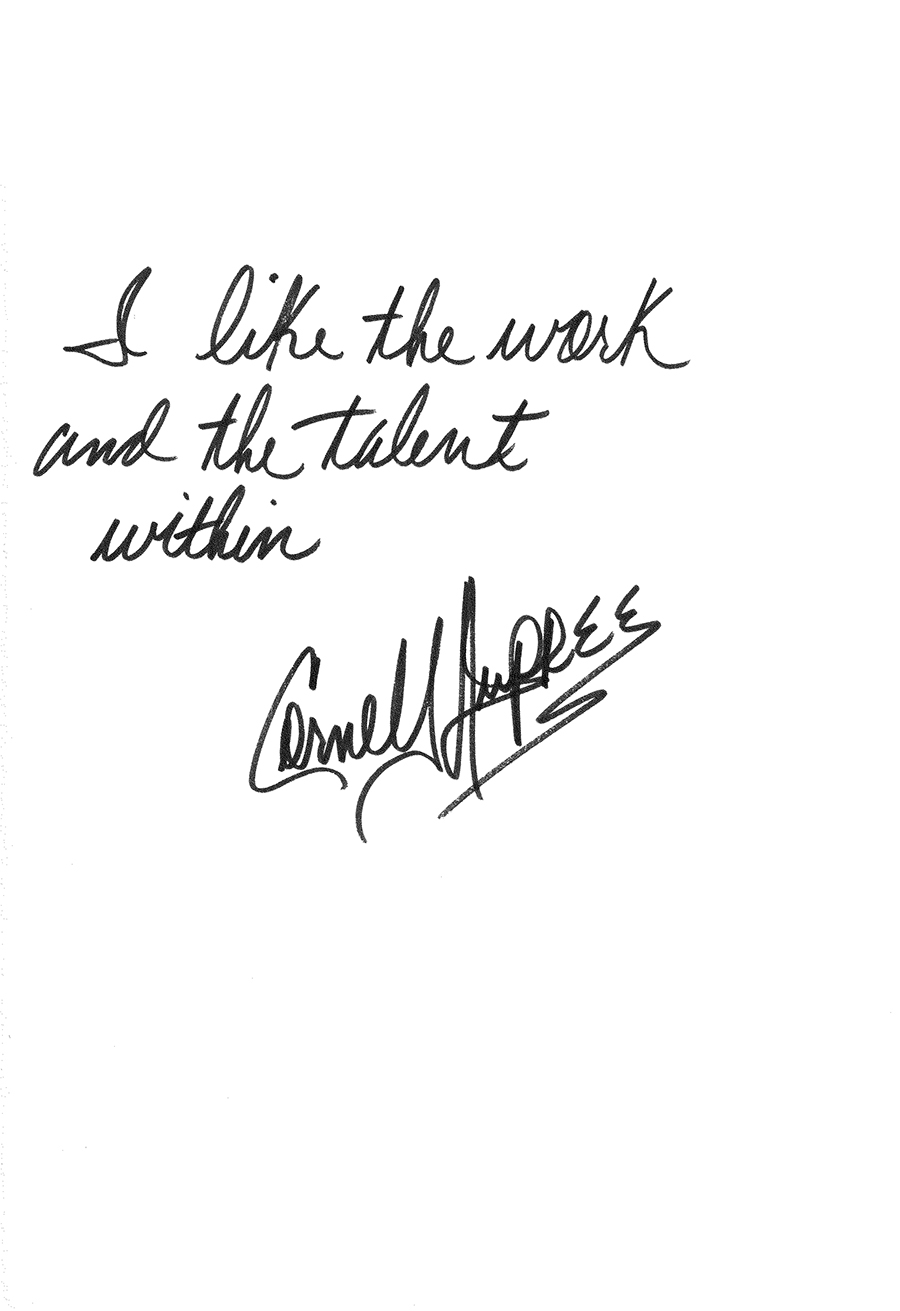 I like the work
and the talent
within
Cornell Dupree